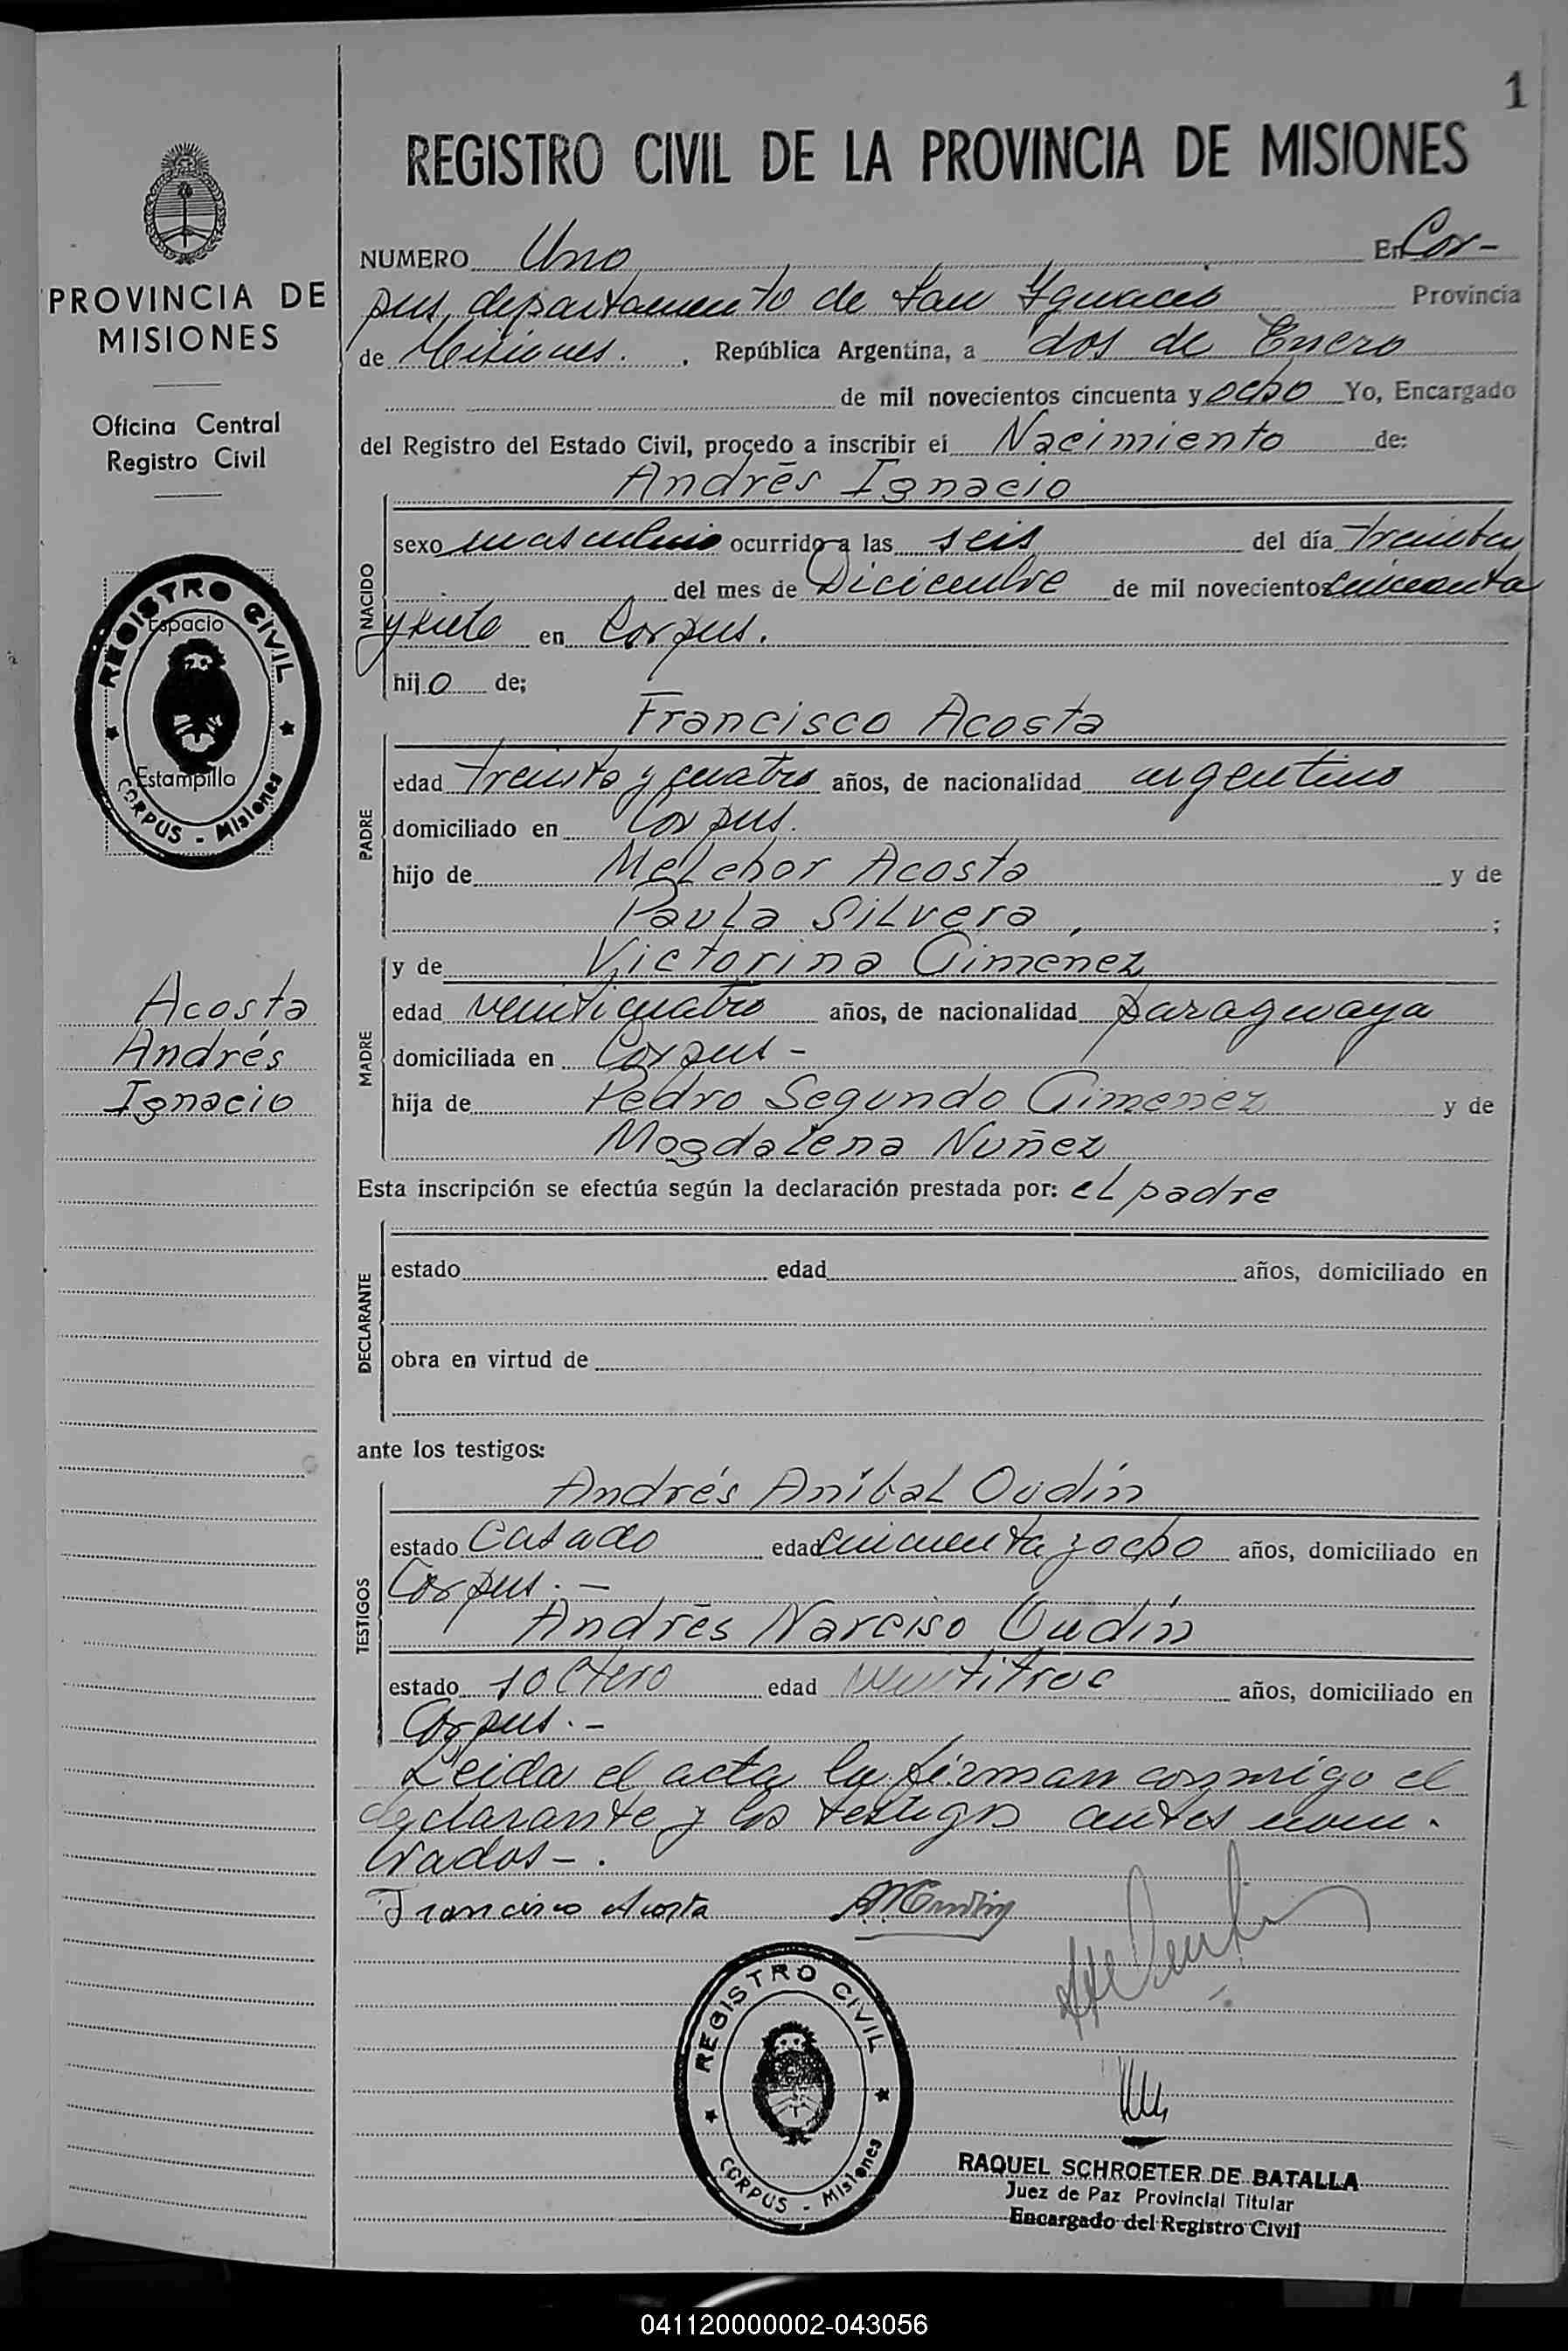 1
REGISTRO CIVIL DE LA PROVINCIA DE MISIONES
PROVINCIA DE
MISIONES
Oficina Central
Registro Civil
REGISTRO CIVIL
Espacio
Estampillo
CORPUS - Misiones
Acosta
Andrés
Ignacio
NUMERO Uno En Cor-
pus, departamento de San Ygnacio Provincia
de Misiones. República Argentina, a dos de Enero
de mil novecientos cincuenta y ocho Yo, Encargado
del Registro del Estado Civil, procedo a inscribir el Nacimiento de:
Andrés Ignacio
NACIDO
sexo masculino ocurrido a las seis del día treinta
del mes de Diciembre de mil novecientos cincuenta
y siete en Corpus.
hijo de;
Francisco Acosta
PADRE
edad treinta y cuatro años, de nacionalidad argentino
domiciliado en Corpus.
hijo de Melchor Acosta y de
Paula Silvera, ;
MADRE
y de Victorina Gimenez
edad veinticuatro años, de nacionalidad paraguaya
domiciliada en Corpus -
hija de Pedro Segundo Gimenez y de
Magdalena Nuñez
Esta inscripción se efectúa según la declaración prestada por: el padre
DECLARANTE
estado edad años, domiciliado en
obra en virtud de
ante los testigos:
Andrés Aníbal Oudín
TESTIGOS
estado Casado edad cincuenta y ocho años, domiciliado en
Corpus. -
Andrés Narciso Oudín
estado soltero edad veintitres años, domiciliado en
Corpus. -
Leida el acta la firman conmigo el
declarante y los testigos antes nom-
brados - .
Francisco Acosta
REGISTRO CIVIL
CORPUS - Misiones
RAQUEL SCHROETER DE BATALLA
Juez de Paz Provincial Titular
Encargado del Registro Civil
041120000002-043056